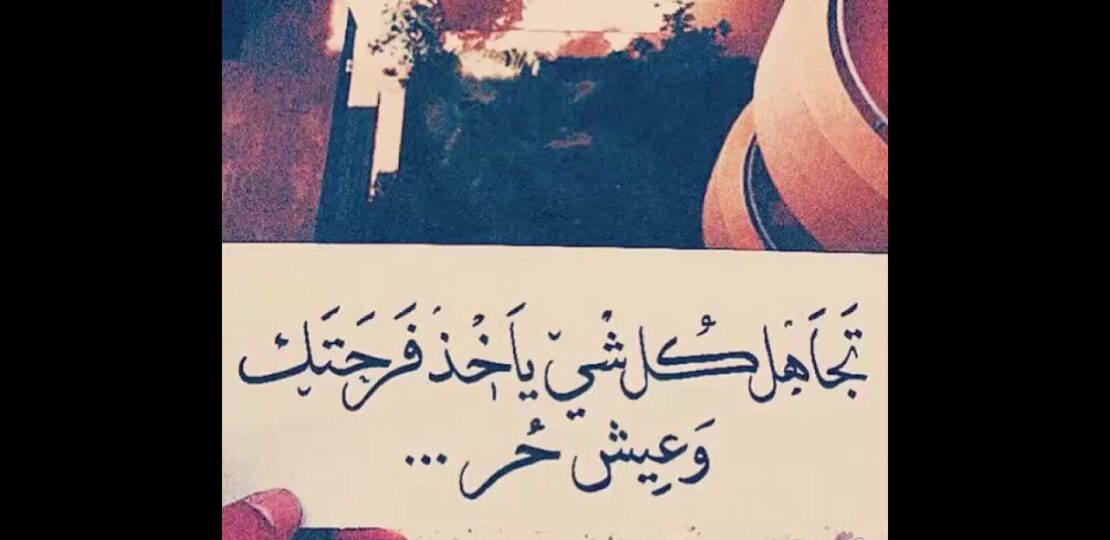 تَجَاهَل كُل شْيّ يَاخُذ فَرحَتَك
وَعِيش حُر ...